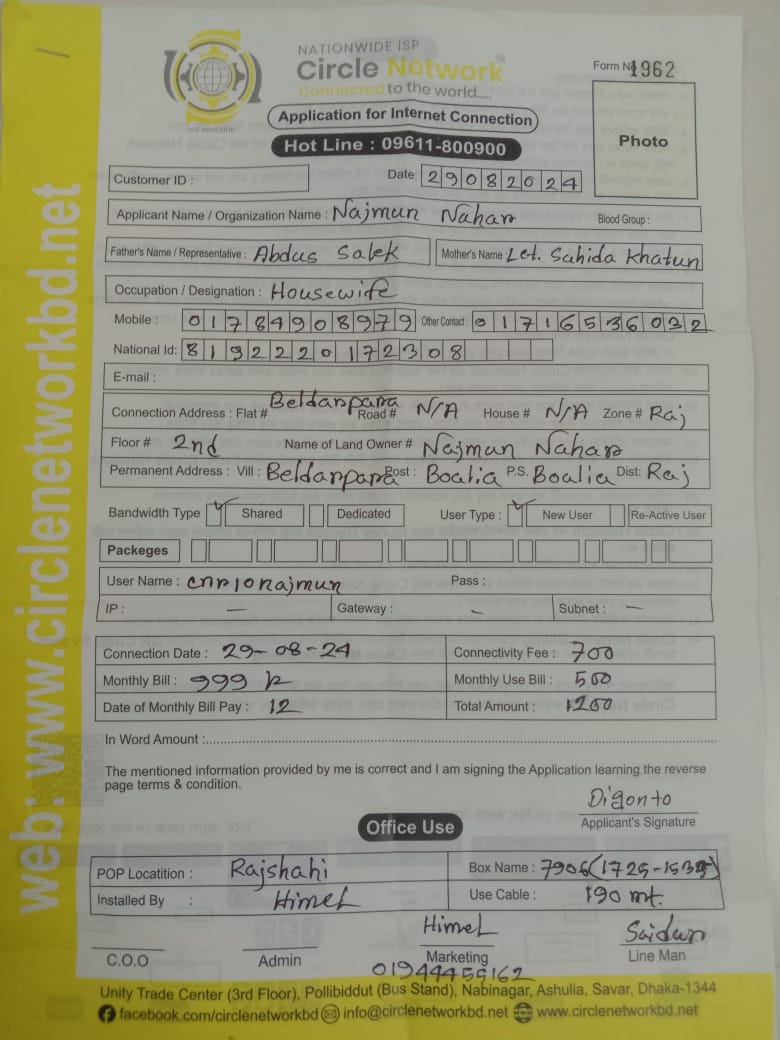 NATIONWIDE ISP
Circle Network
Connected to the world.....
Form No 1962
Application for Internet Connection
Hot Line : 09611-800900
Photo
Customer ID :
Date: 29082024
Applicant Name / Organization Name : Najmun Nahar Blood Group :
Father's Name / Representative : Abdus Salek Mother's Name Let. Sahida Khatun
Occupation / Designation : Housewife
Mobile : 01784908979 Other Contact : 01716536032
National Id: 8192220172308
E-mail :
Connection Address : Flat # Beldarpara Road # N/A House # N/A Zone # Raj
Floor # 2nd Name of Land Owner # Najmun Nahar
Permanent Address : Vill : Beldarpara Post : Boalia P.S. Boalia Dist: Raj
Bandwidth Type ✓ Shared Dedicated User Type : ✓ New User Re-Active User
Packeges
User Name : cnrionajmun Pass :
IP : — Gateway : – Subnet : –
Connection Date : 29-08-24 Connectivity Fee : 700
Monthly Bill : 999 Monthly Use Bill : 500
Date of Monthly Bill Pay : 12 Total Amount : 1200
In Word Amount :
The mentioned information provided by me is correct and I am signing the Application learning the reverse
page terms & condition.
Digonto
Applicant's Signature
Office Use
POP Locatition : Rajshahi Box Name : 7906
Installed By : Himel Use Cable : 190 mt.
Himel Saidur
C.O.O Admin Marketing Line Man
01944459162
Unity Trade Center (3rd Floor), Pollibiddut (Bus Stand), Nabinagar, Ashulia, Savar, Dhaka-1344
facebook.com/circlenetworkbd info@circlenetworkbd.net www.circlenetworkbd.net
web: www.circlenetworkbd.net